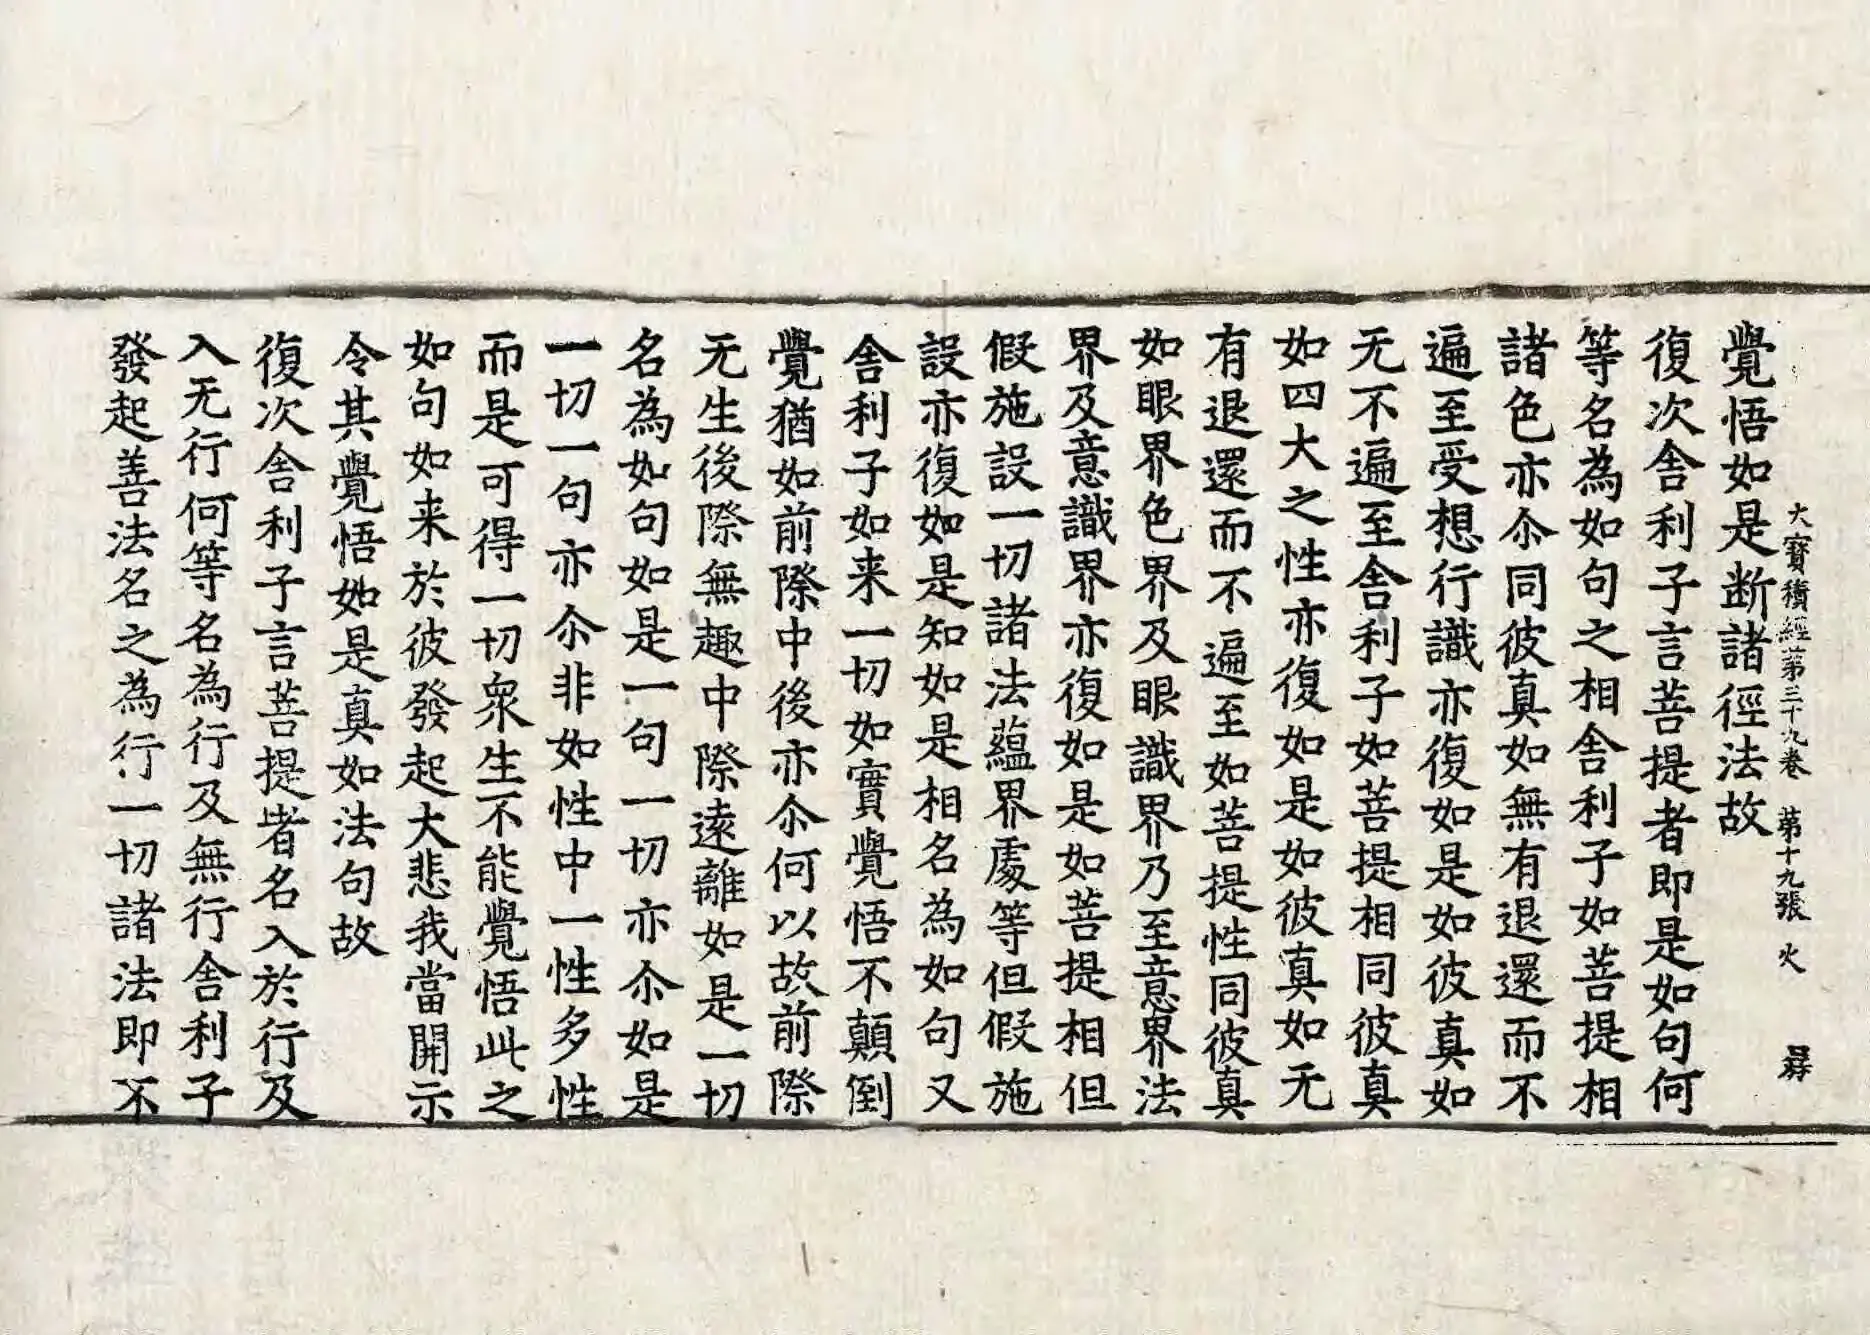 大寶積經第三十九卷 第十九張 火
覺悟如是断諸徑法故
復次舎利子言菩提者即是如句何
等名為如句之相舎利子如菩提相
諸色亦尒同彼真如無有退還而不
遍至受想行識亦復如是如彼真如
无不遍至舎利子如菩提相同彼真
如四大之性亦復如是如彼真如无
有退還而不遍至如菩提性同彼真
如眼界色界及眼識界乃至意界法
界及意識界亦復如是如菩提相但
假施設一切諸法蘊界處等但假施
設亦復如是知如是相名為如句又
舎利子如来一切如實覺悟不顛倒
覺猶如前際中後亦尒何以故前際
无生後際無趣中際遠離如是一切
名為如句如是一句一切亦尒如是
一切一句亦尒非如性中一性多性
而是可得一切衆生不能覺悟此之
如句如来於彼發起大悲我當開示
令其覺悟如是真如法句故
復次舎利子言菩提者名入於行及
入无行何等名為行及無行舎利子
發起善法名之為行一切諸法即不